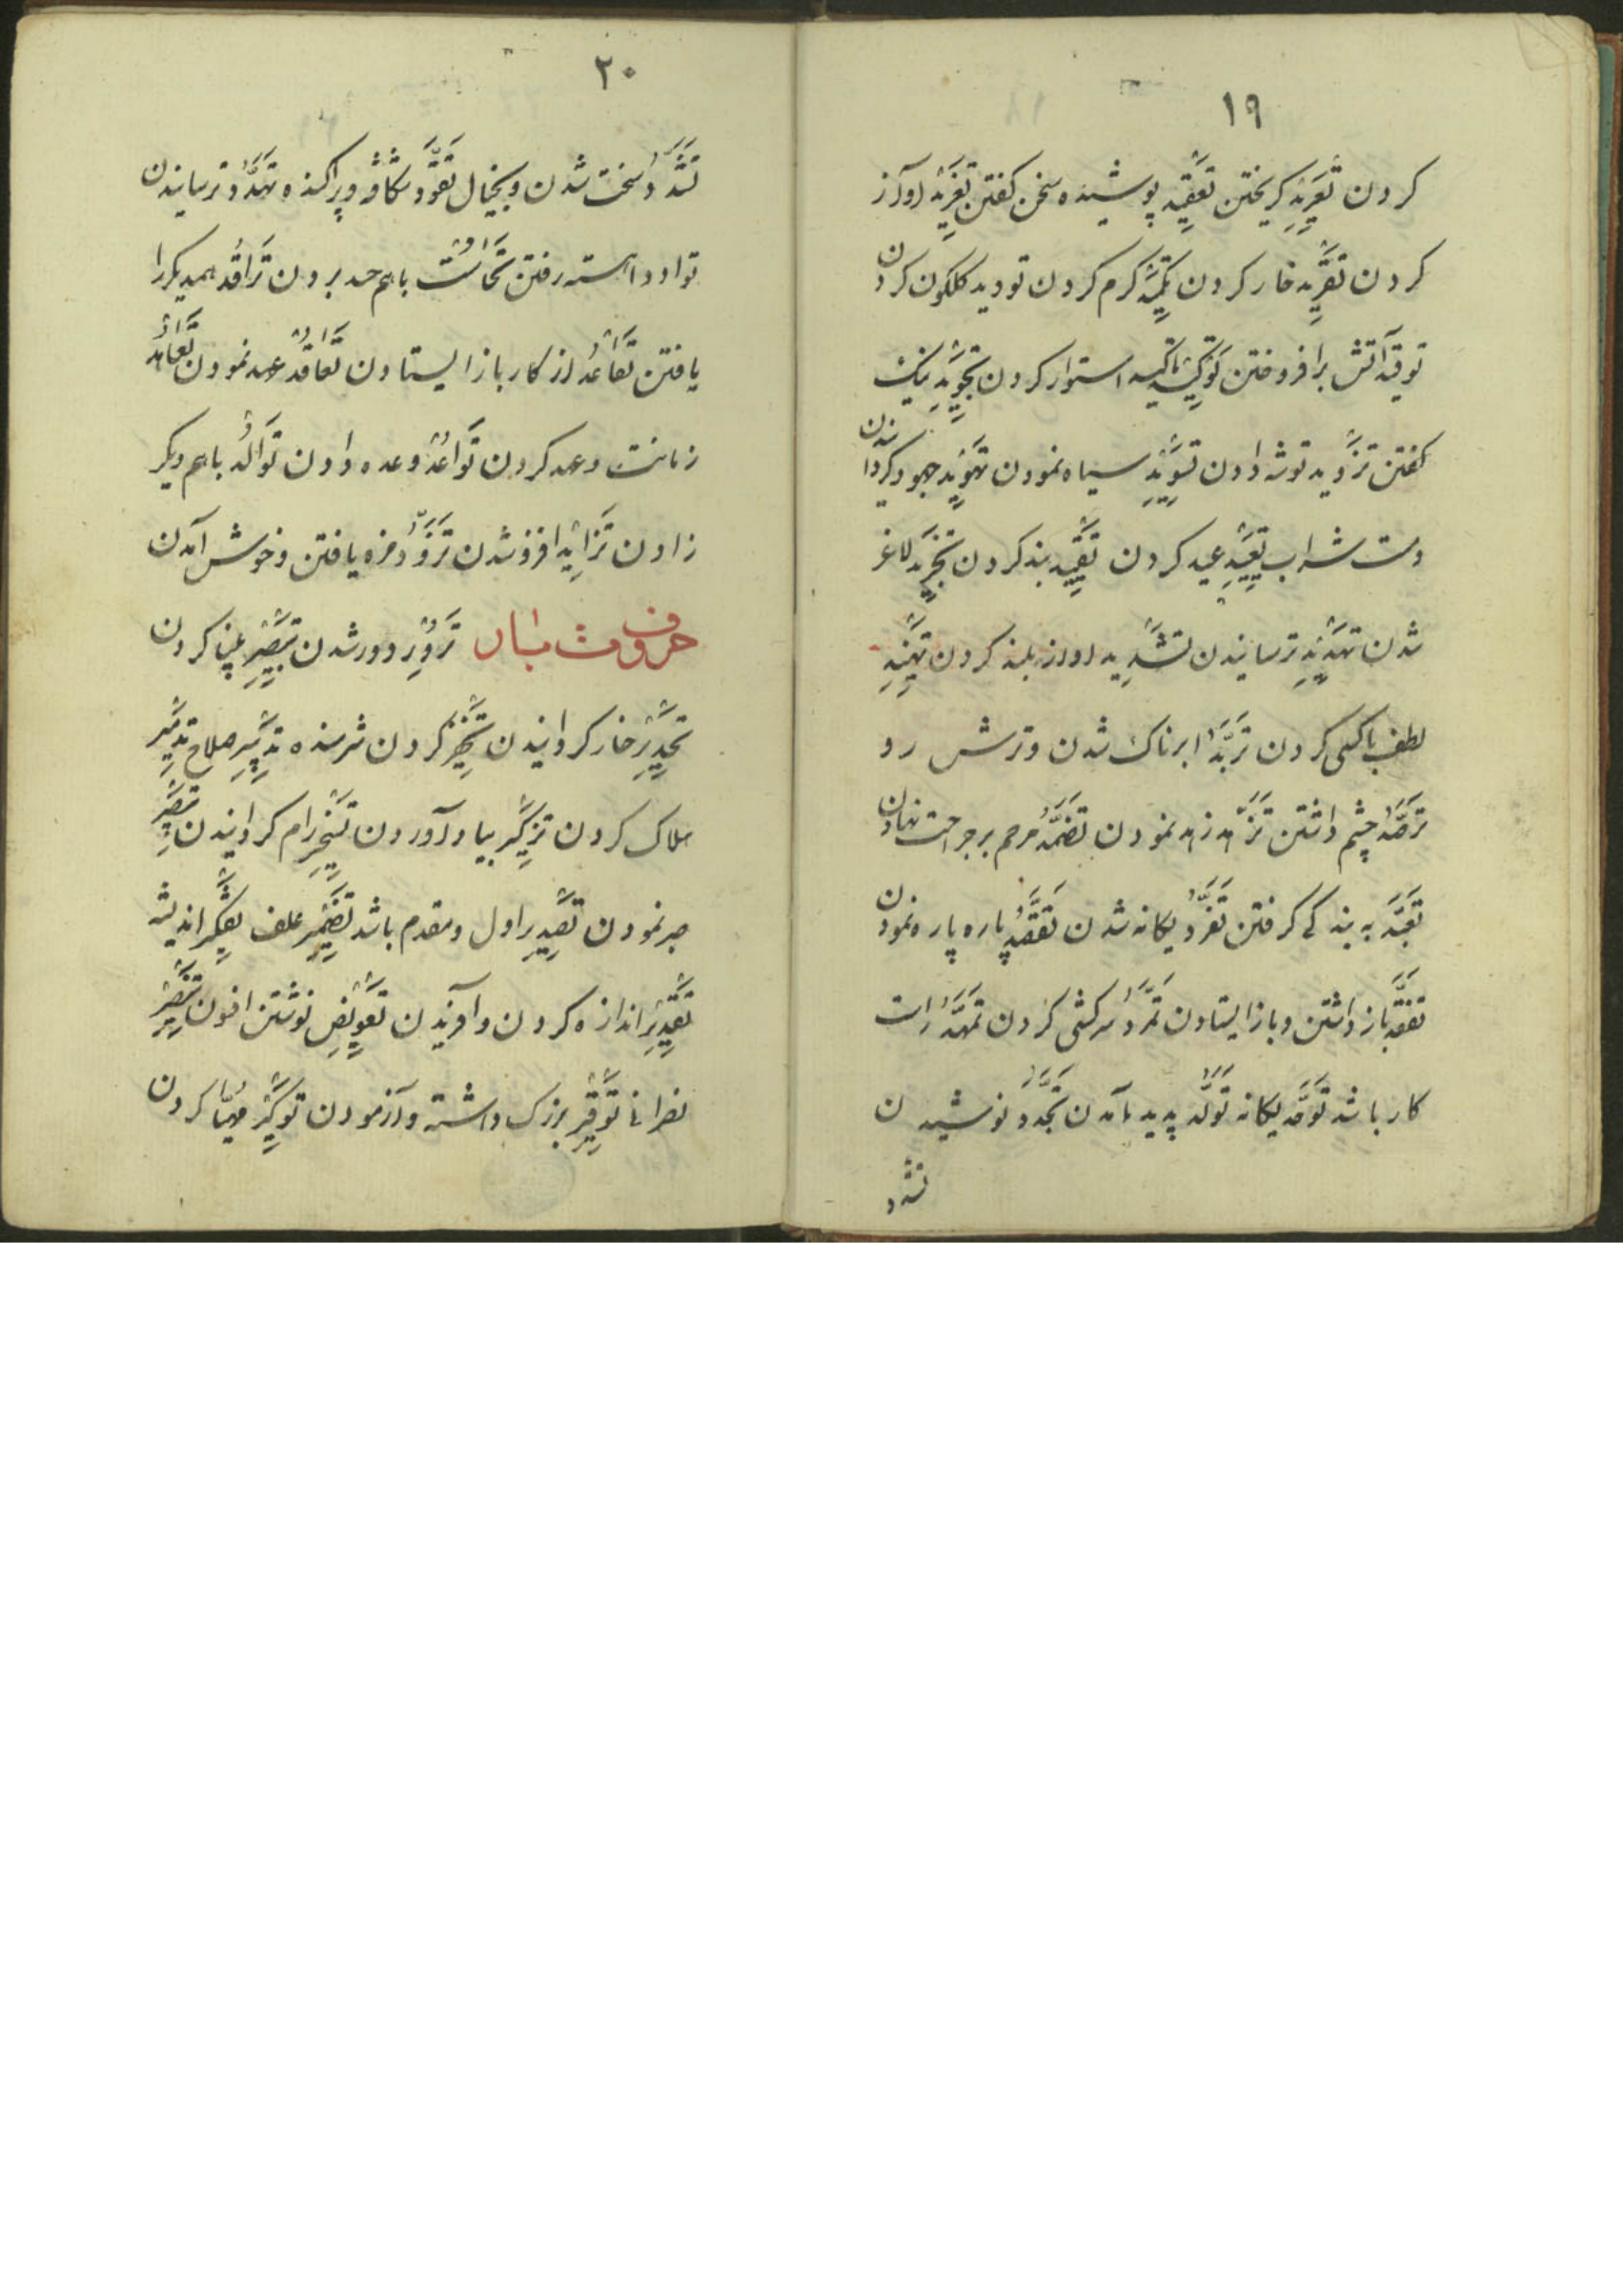 ١٩
کردن تعرید کریختن تعقید پوشیده سخن کفتن تغرید اوآز
کردن تفرید خار کردن کرم کردن تودید کلکون کردن
توقد آتش برافروختن توکید تاکید استوار کردن تجوید نیک
کفتن تزوید توشه دادن تسوید سیاه نمودن تهوید جهود کردا
ندن
ومست شراب تعیید عید کردن تقیید بند کردن لاغر
شدن تهدید ترسانیدن تشدید اواز بلند کردن
لطف باکسی کردن تربد ابرناک شدن وترش رو
ترصد چشم داشتن تزهد زهد نمودن تضمد مرحم برجراحت نهادن
تعبد به بندکے کرفتن تفرد یکانه شدن پاره پاره نمودن
باز داشتن وباز ایستادن تمرد سرکشی کردن تمهد راست
کار باشد توحد یکانه تولد پدید آمدن تجدد نوشیدن
تشدد
٢٠
تشدد سخت شدن وبخیال شکاف وپراکنده تهدد ترسانیدن
تواد داسته رفتن باهم حد بردن ترافد همدیکررا
یافتن تقاعد از کار باز ایستادن تعاقد عهد نمودن تعاهد
زمانت وعهد کردن تواعد وعده دادن توالد باهم دیکر
زادن تزاید افزو شدن تزود مزه یافتن وخوش آمدن
حروف تزور دور شدن تبصیر بینا کردن
خار کردانیدن کردن شرمنده تدبیر صلاح تدمیر
هلاک کردن تذکیر بیاد آوردن تسخیر رام کردانیدن تصبیر
صبر نمودن تصدیر اول ومقدم باشد تضمیر علف تفکیر اندیشه
تقدیر اندازه کردن وآفریدن تعویض نوشتن افسون تنصیر
نصرانا توقیر بزرک داشته وآزمودن مهیا کردن